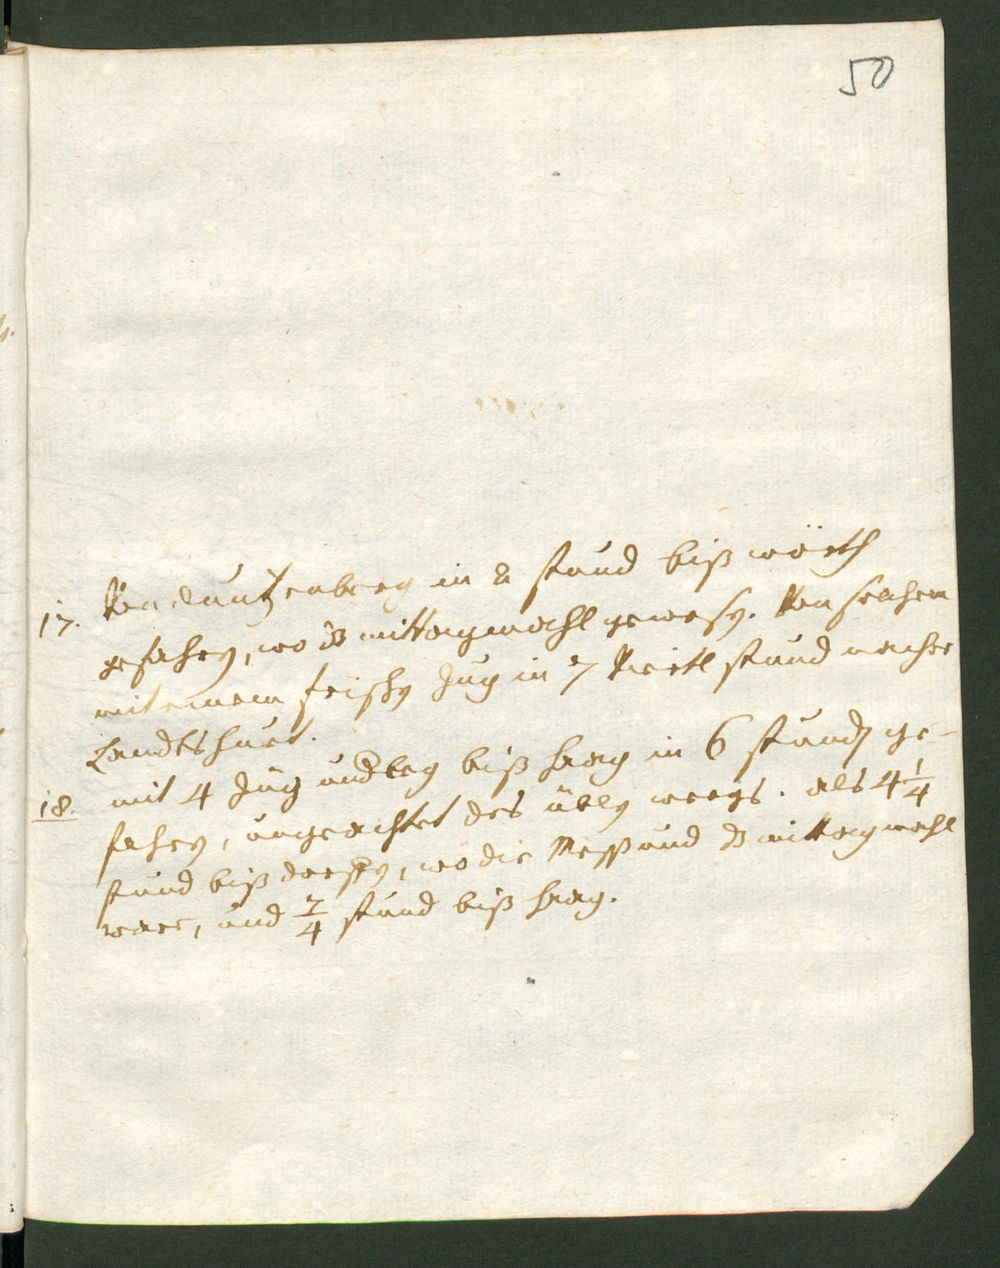 50
17. Von Lautzenberg in 2 stund biß wörth
gefahrn, wo dz mittagmahl gewesen. Von solchem
mit einem frischen Zug in 7 Viertl stund nacher
Landtshuet.
18. mit 4 Zug underleg biß haag in 6 stunden ge-
fahrn, ungeachtet des üblen weegs. als 4 1/4
stund biß dorffen, wo die Mess und dz mittagmahl
ware, und 7/4 stund biß haag.